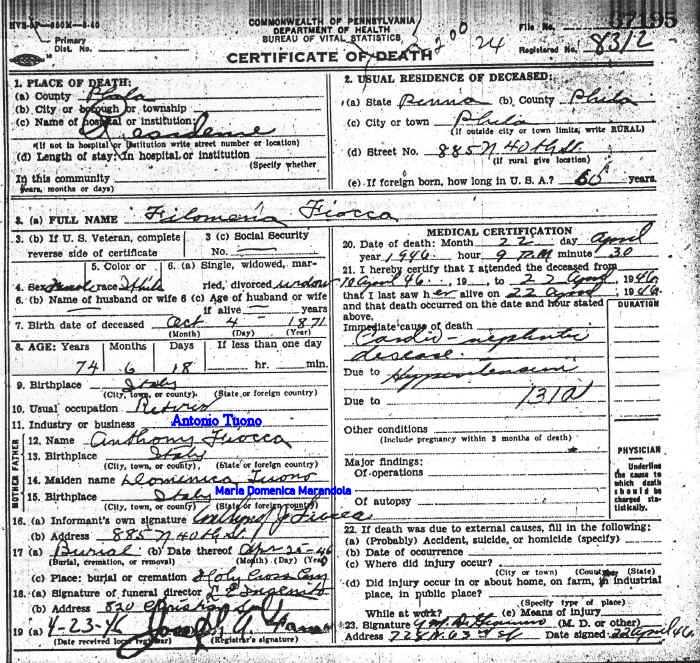 HVS-20M-8-40
COMMONWEALTH OF PENNSYLVANIA
DEPARTMENT OF HEALTH
BUREAU OF VITAL STATISTICS
File No. 37195
Primary
Dist. No.
CERTIFICATE OF DEATH
200 24
Registered No. 8312
1. PLACE OF DEATH:
(a) County Phila
(b) City or borough or township
(c) Name of hospital or institution:
Residence
(If not in hospital or institution write street number or location)
(d) Length of stay: In hospital or institution
(Specify whether
In this community
years, months or days)
2. USUAL RESIDENCE OF DECEASED:
(a) State Penna (b) County Phila
(c) City or town Phila
(If outside city or town limits, write RURAL)
(d) Street No. 885 N 40th St.
(If rural give location)
(e) If foreign born, how long in U. S. A.? 60 years.
3. (a) FULL NAME Filomena Fiocca
3. (b) If U. S. Veteran, complete
reverse side of certificate
3 (c) Social Security
No.
4. Sex Female
5. Color or
race White
6. (a) Single, widowed, mar-
ried, divorced widow
6. (b) Name of husband or wife
6 (c) Age of husband or wife
if alive years
7. Birth date of deceased Oct 4 1871
(Month) (Day) (Year)
8. AGE: Years Months Days If less than one day
74 6 18 hr. min.
9. Birthplace Italy
(City, town, or county) (State or foreign country)
10. Usual occupation Retired
11. Industry or business
Antonio Tuono
MOTHER FATHER
12. Name Anthony Fiocca
13. Birthplace Italy
(City, town, or county) (State or foreign country)
14. Maiden name Domenica Tuono
15. Birthplace Italy
Maria Domenica Marandola
(City, town, or county) (State or foreign country)
16. (a) Informant's own signature Anthony J Fiocca
(b) Address 885 N 40th St.
17 (a) Burial (b) Date thereof Apr 26-46
(Burial, cremation, or removal) (Month) (Day) (Year)
(c) Place: burial or cremation Holy Cross Cem
18. (a) Signature of funeral director
(b) Address 820 Christian St
19 (a) 4-23-46 Joseph A.
(Date received local registrar) (Registrar's signature)
MEDICAL CERTIFICATION
20. Date of death: Month 22 day April
year 1946 hour 9 P.M minute 30
21. I hereby certify that I attended the deceased from
10 April 46, 19 to 22 April, 1946
that I last saw her alive on 22 April 1946
and that death occurred on the date and hour stated
above.
DURATION
Immediate cause of death
Cardio-nephritic
disease
Due to Hypertension
Due to 131a
Other conditions
(Include pregnancy within 3 months of death)
Major findings:
Of operations
Of autopsy
PHYSICIAN
Underline
the cause to
which death
should be
charged sta-
tistically.
22. If death was due to external causes, fill in the following:
(a) (Probably) Accident, suicide, or homicide (specify)
(b) Date of occurrence
(c) Where did injury occur?
(City or town) (County) (State)
(d) Did injury occur in or about home, on farm, in industrial
place, in public place?
(Specify type of place)
While at work? (e) Means of injury
23. Signature (M. D. or other)
Address 722 N. 63rd St Date signed 22 April 46